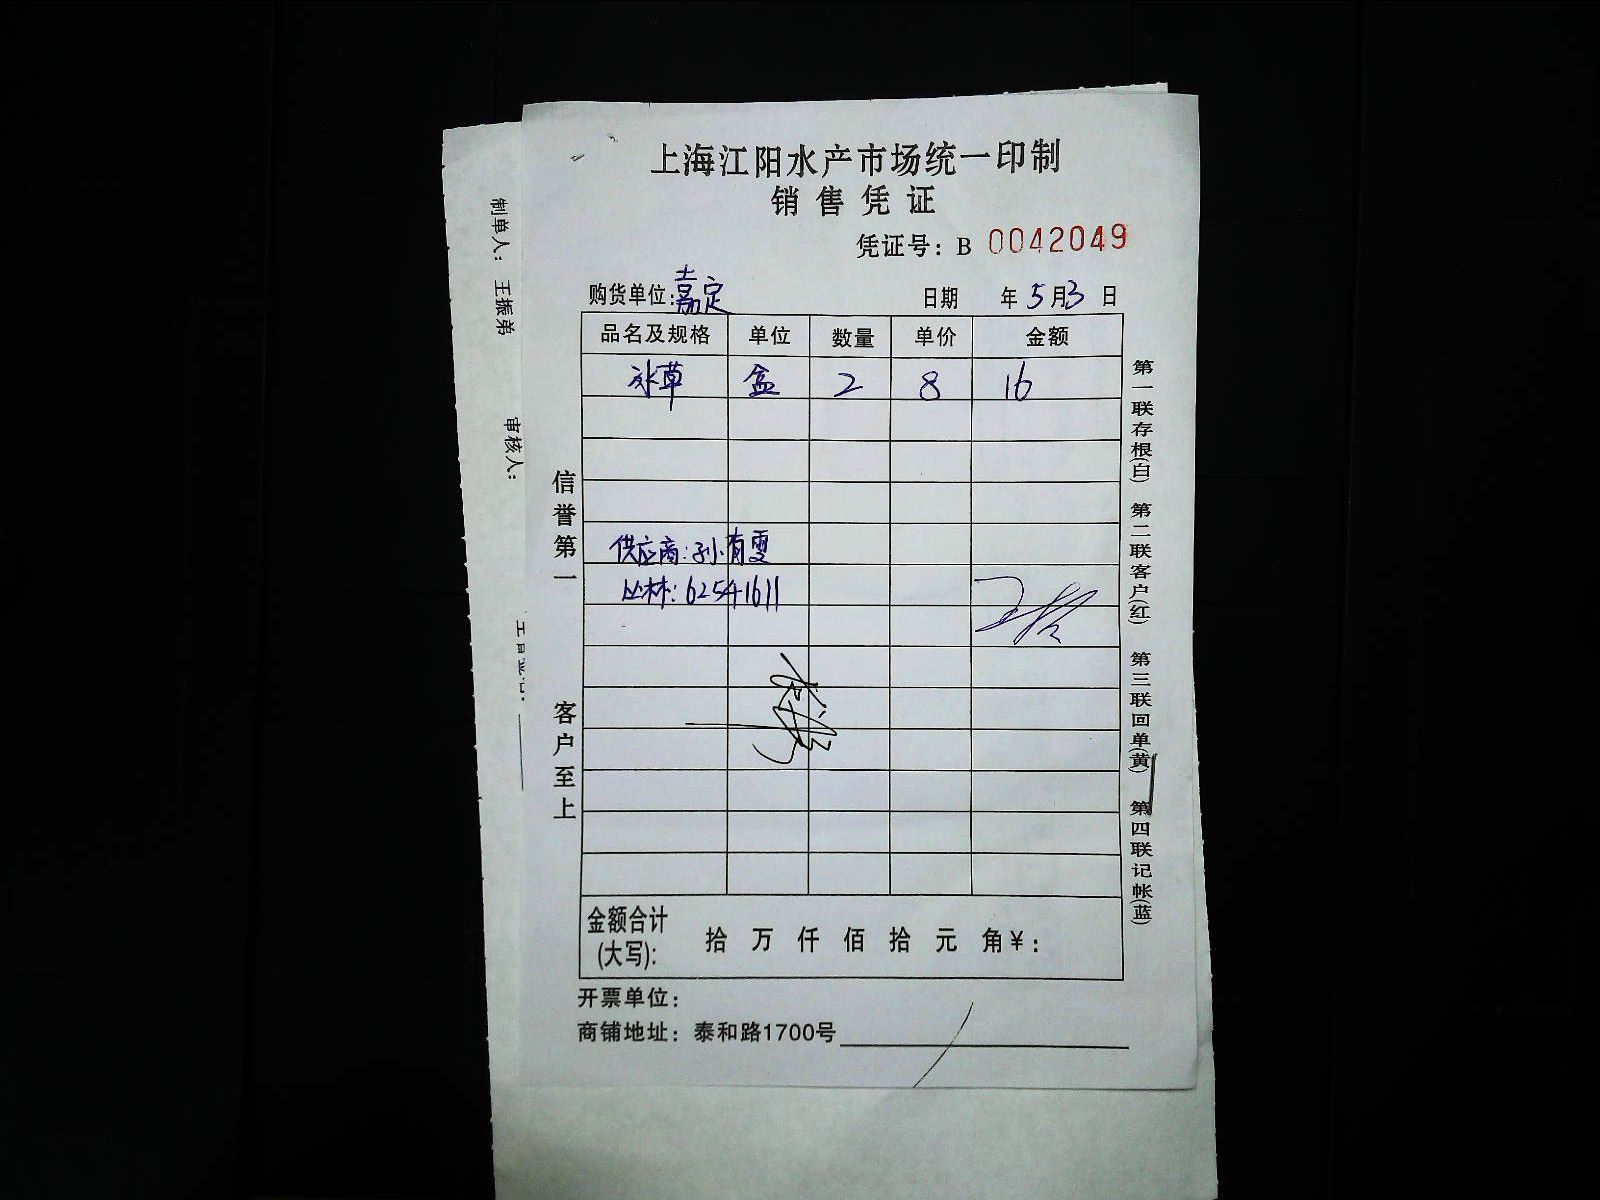 上海江阳水产市场统一印制
销售凭证
凭证号：B 0042049
购货单位：嘉定 日期 年5月3日
品名及规格 单位 数量 单价 金额
冰草 盒 2 8 16
供应商：孙有雯
丛林：62541611
金额合计(大写)： 拾 万 仟 佰 拾 元 角¥：
开票单位：
商铺地址：泰和路1700号
信誉第一 客户至上
第一联存根(白) 第二联客户(红) 第三联回单(黄) 第四联记帐(蓝)
制单人：王振弟 审核人：